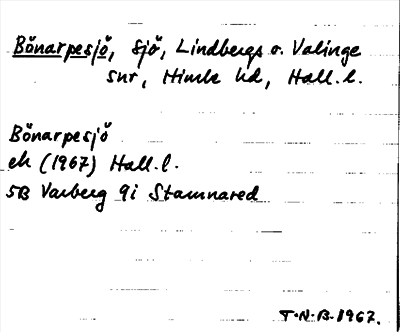 Bönarpesjö, sjö, Lindbergs o. Valinge
snr, Himle hd, Hall. l.
Bönarpesjö
ek (1967) Hall. l.
5B Varberg 9i Stamnared
T.N.B. 1967.